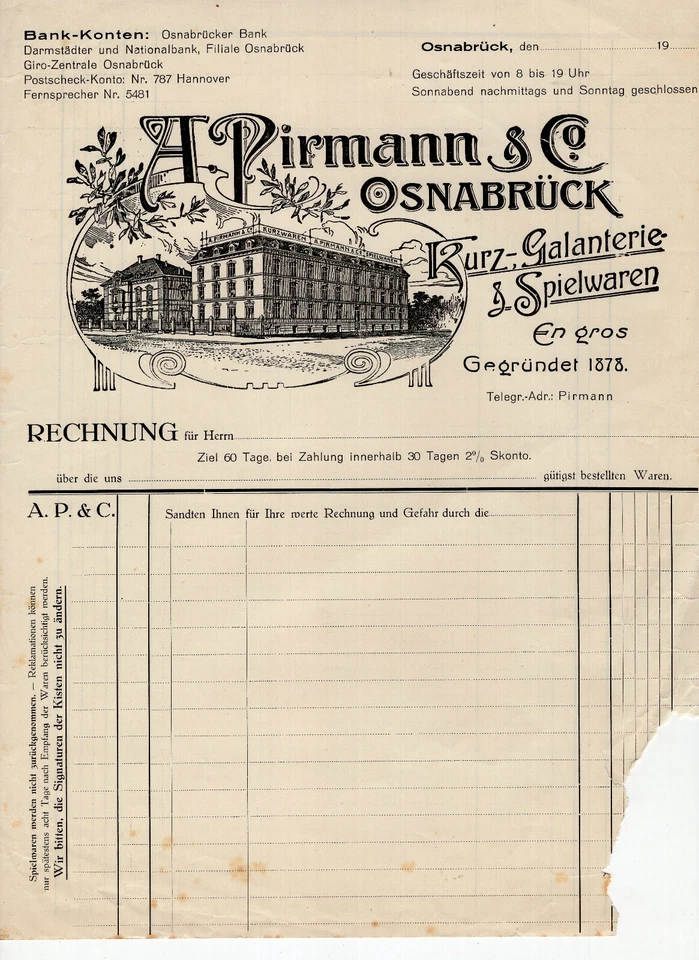 Bank-Konten: Osnabrücker Bank
Darmstädter und Nationalbank, Filiale Osnabrück
Giro-Zentrale Osnabrück
Postscheck-Konto: Nr. 787 Hannover
Fernsprecher Nr. 5481
Osnabrück, den 19
Geschäftszeit von 8 bis 19 Uhr
Sonnabend nachmittags und Sonntag geschlossen
A. Pirmann & Co
OSNABRÜCK
A. PIRMANN & Co. KURZWAREN A. PIRMANN & Co. SPIELWAREN
Kurz-, Galanterie-
& Spielwaren
En gros
Gegründet 1878.
Telegr.-Adr.: Pirmann
RECHNUNG für Herrn
Ziel 60 Tage, bei Zahlung innerhalb 30 Tagen 2% Skonto.
über die uns gütigst bestellten Waren.
A. P. & C.
Sandten Ihnen für Ihre werte Rechnung und Gefahr durch die
Spielwaren werden nicht zurückgenommen. — Reklamationen können
nur spätestens acht Tage nach Empfang der Waren berücksichtigt werden.
Wir bitten, die Signaturen der Kisten nicht zu ändern.